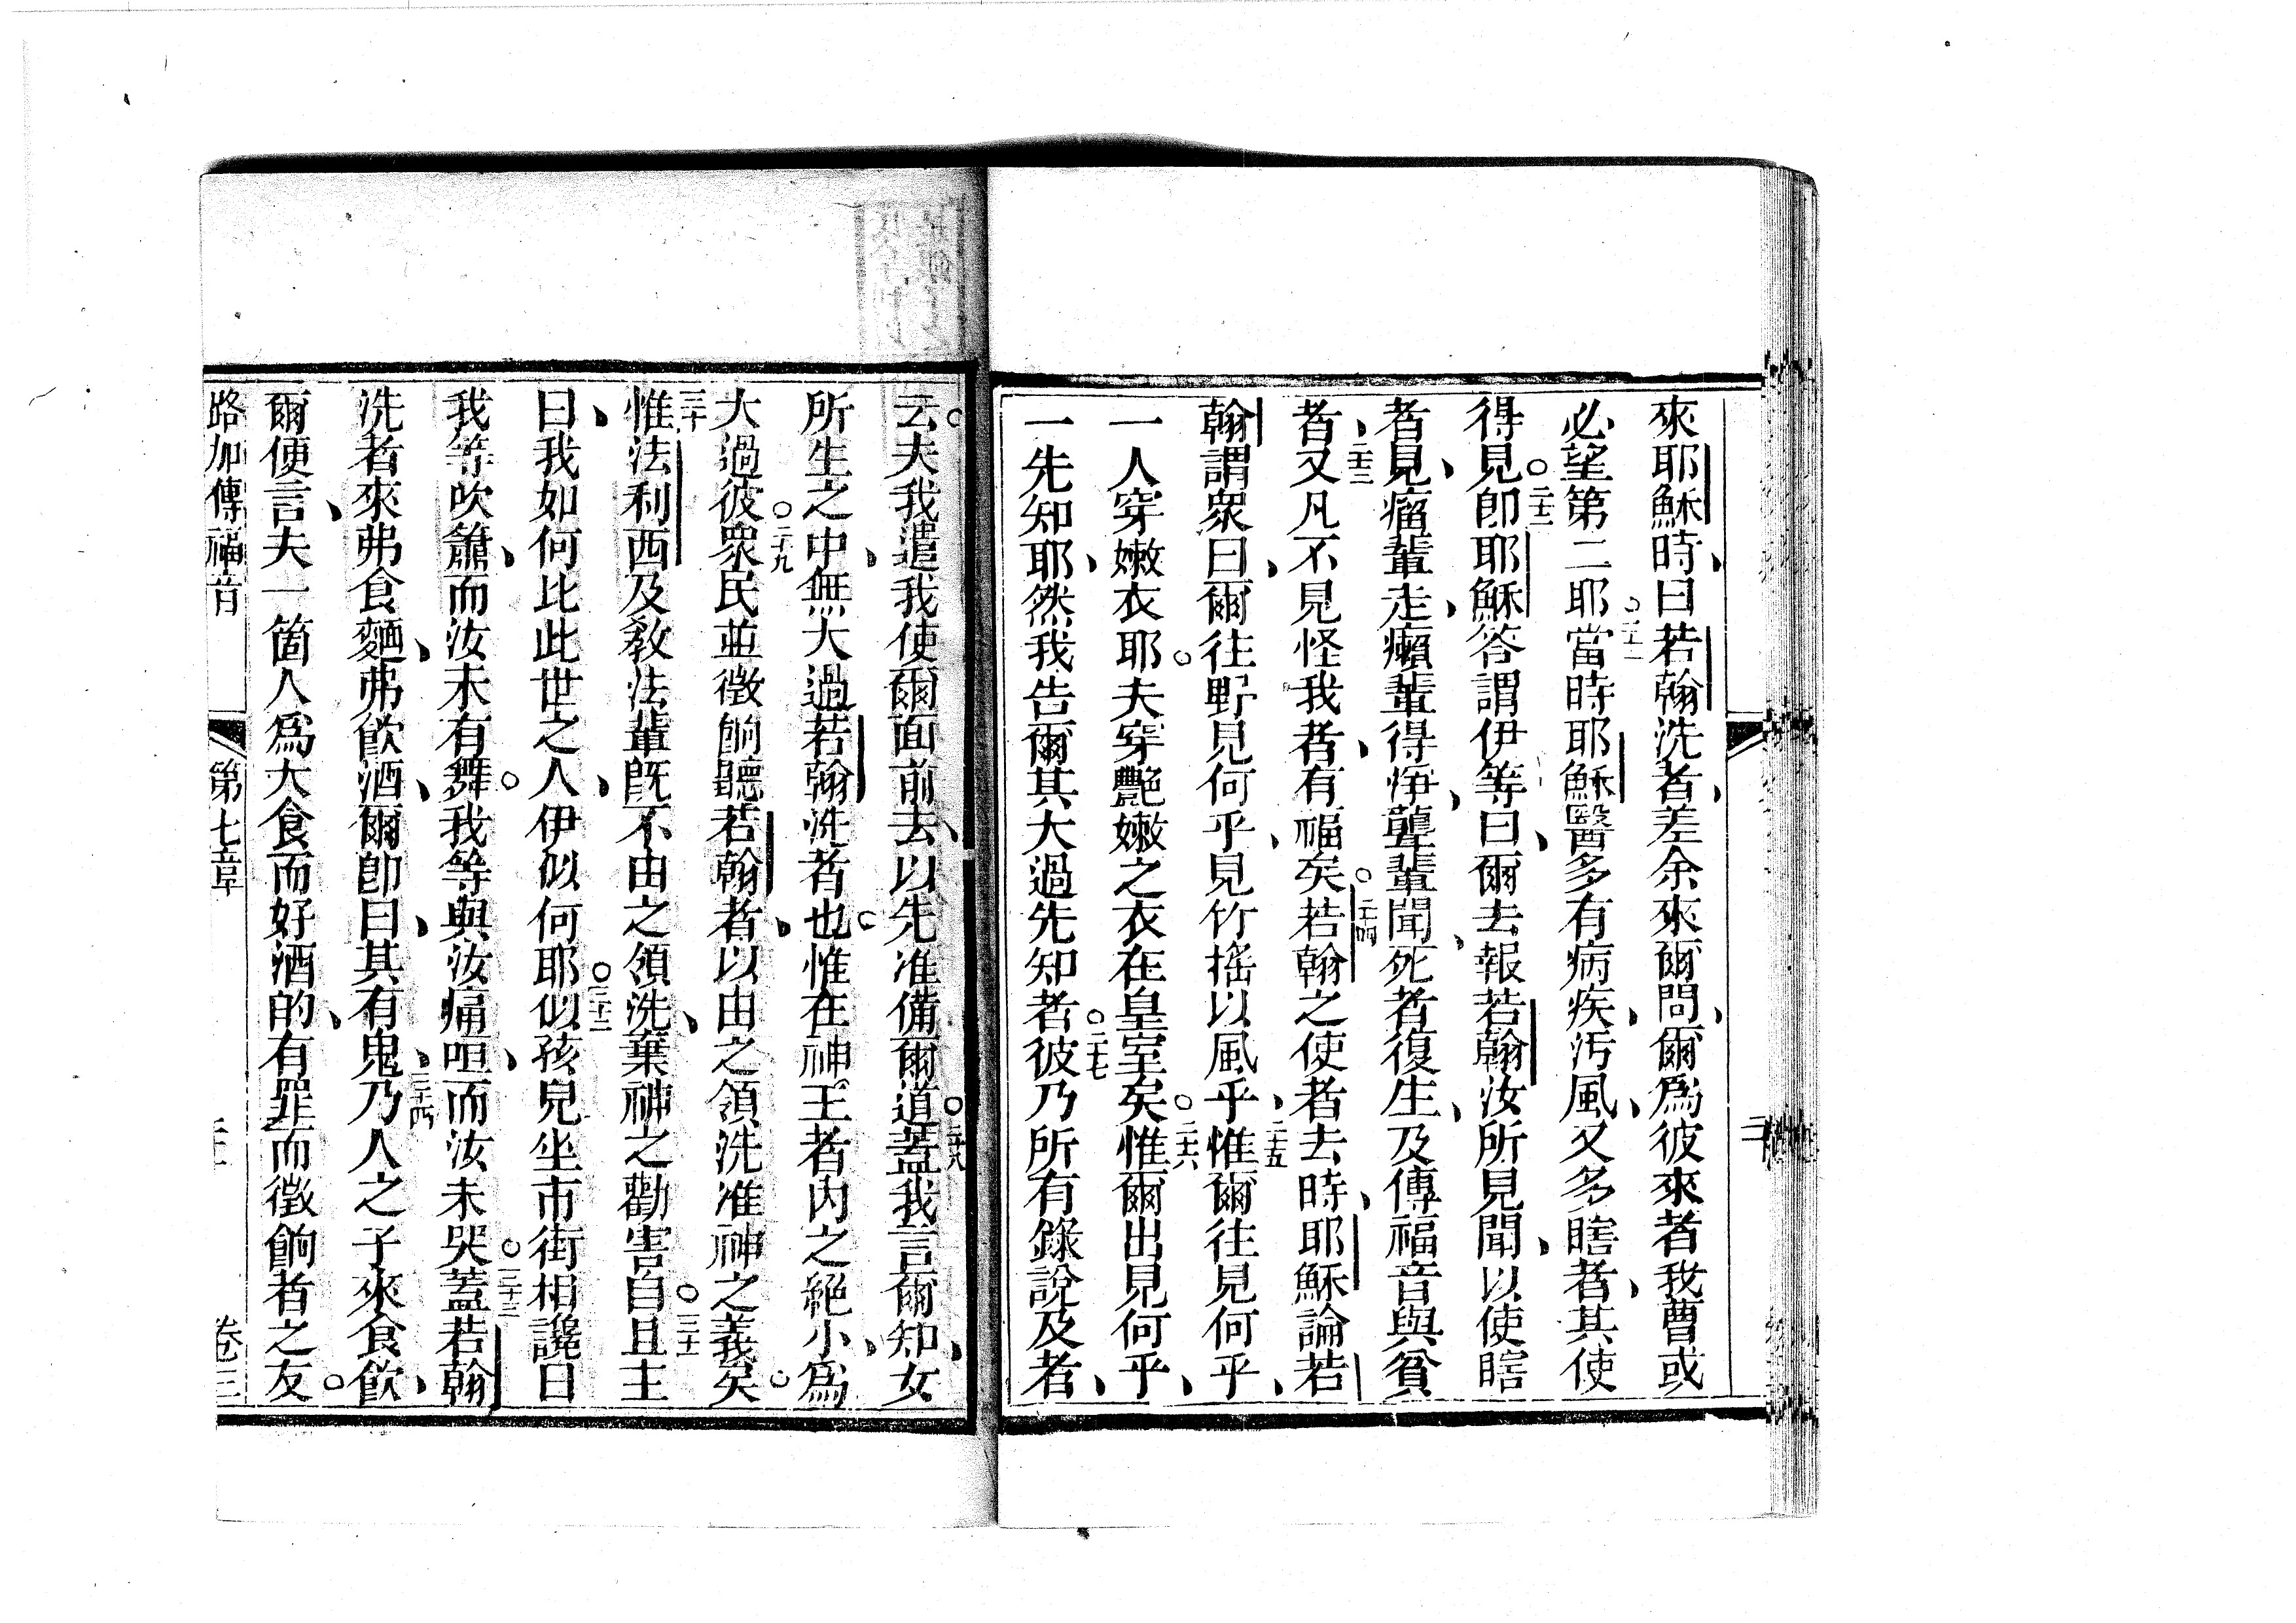 來耶穌時、曰若翰洗者、差余來爾問、爾為彼來者我曹或
必望第二耶○二十一當時耶穌醫多有病疾、污風、又多瞎者、其使
得見○二十二即耶穌答謂伊等曰、爾去報若翰汝所見聞、以使瞎
者見、瘤輩走、癩輩得淨、聾輩聞、死者復生、及傳福音與貧
者、二十三又凡不見怪我者、有福矣○二十四若翰之使者去時、耶穌論若
翰謂眾曰、爾往野見何乎、見竹搖以風乎、二十五惟爾往見何乎、
一人穿嫩衣耶○夫穿艷嫩之衣在皇室矣○二十六惟爾出見何乎、
一先知耶、然我告爾其大過先知者○二十七彼乃所有錄說及者、
云○夫我遣我使爾面前去、以先准備爾道○二十八蓋我言爾知、女
所生之中、無大過若翰洗者也○惟在神王者內之絕小、為
大過彼○二十九眾民並徵餉聽若翰者、以由之領洗准神之義矣○
三十惟法利西及教法輩既不由之領洗、棄神之勸害自○三十一且主
曰、我如何比此世之人、伊似何耶○三十二似孩兒坐市街相讒曰
我等吹簫、而汝未有舞○我等與汝痛咺、而汝未哭○三十三蓋若翰
洗者來弗食麵、弗飲酒、爾即曰、其有鬼、三十四乃人之子來食飲、
爾便言、夫一箇人為大食而好酒的、有罪而徵餉者之友○
路加傳福音 第七章 卷三